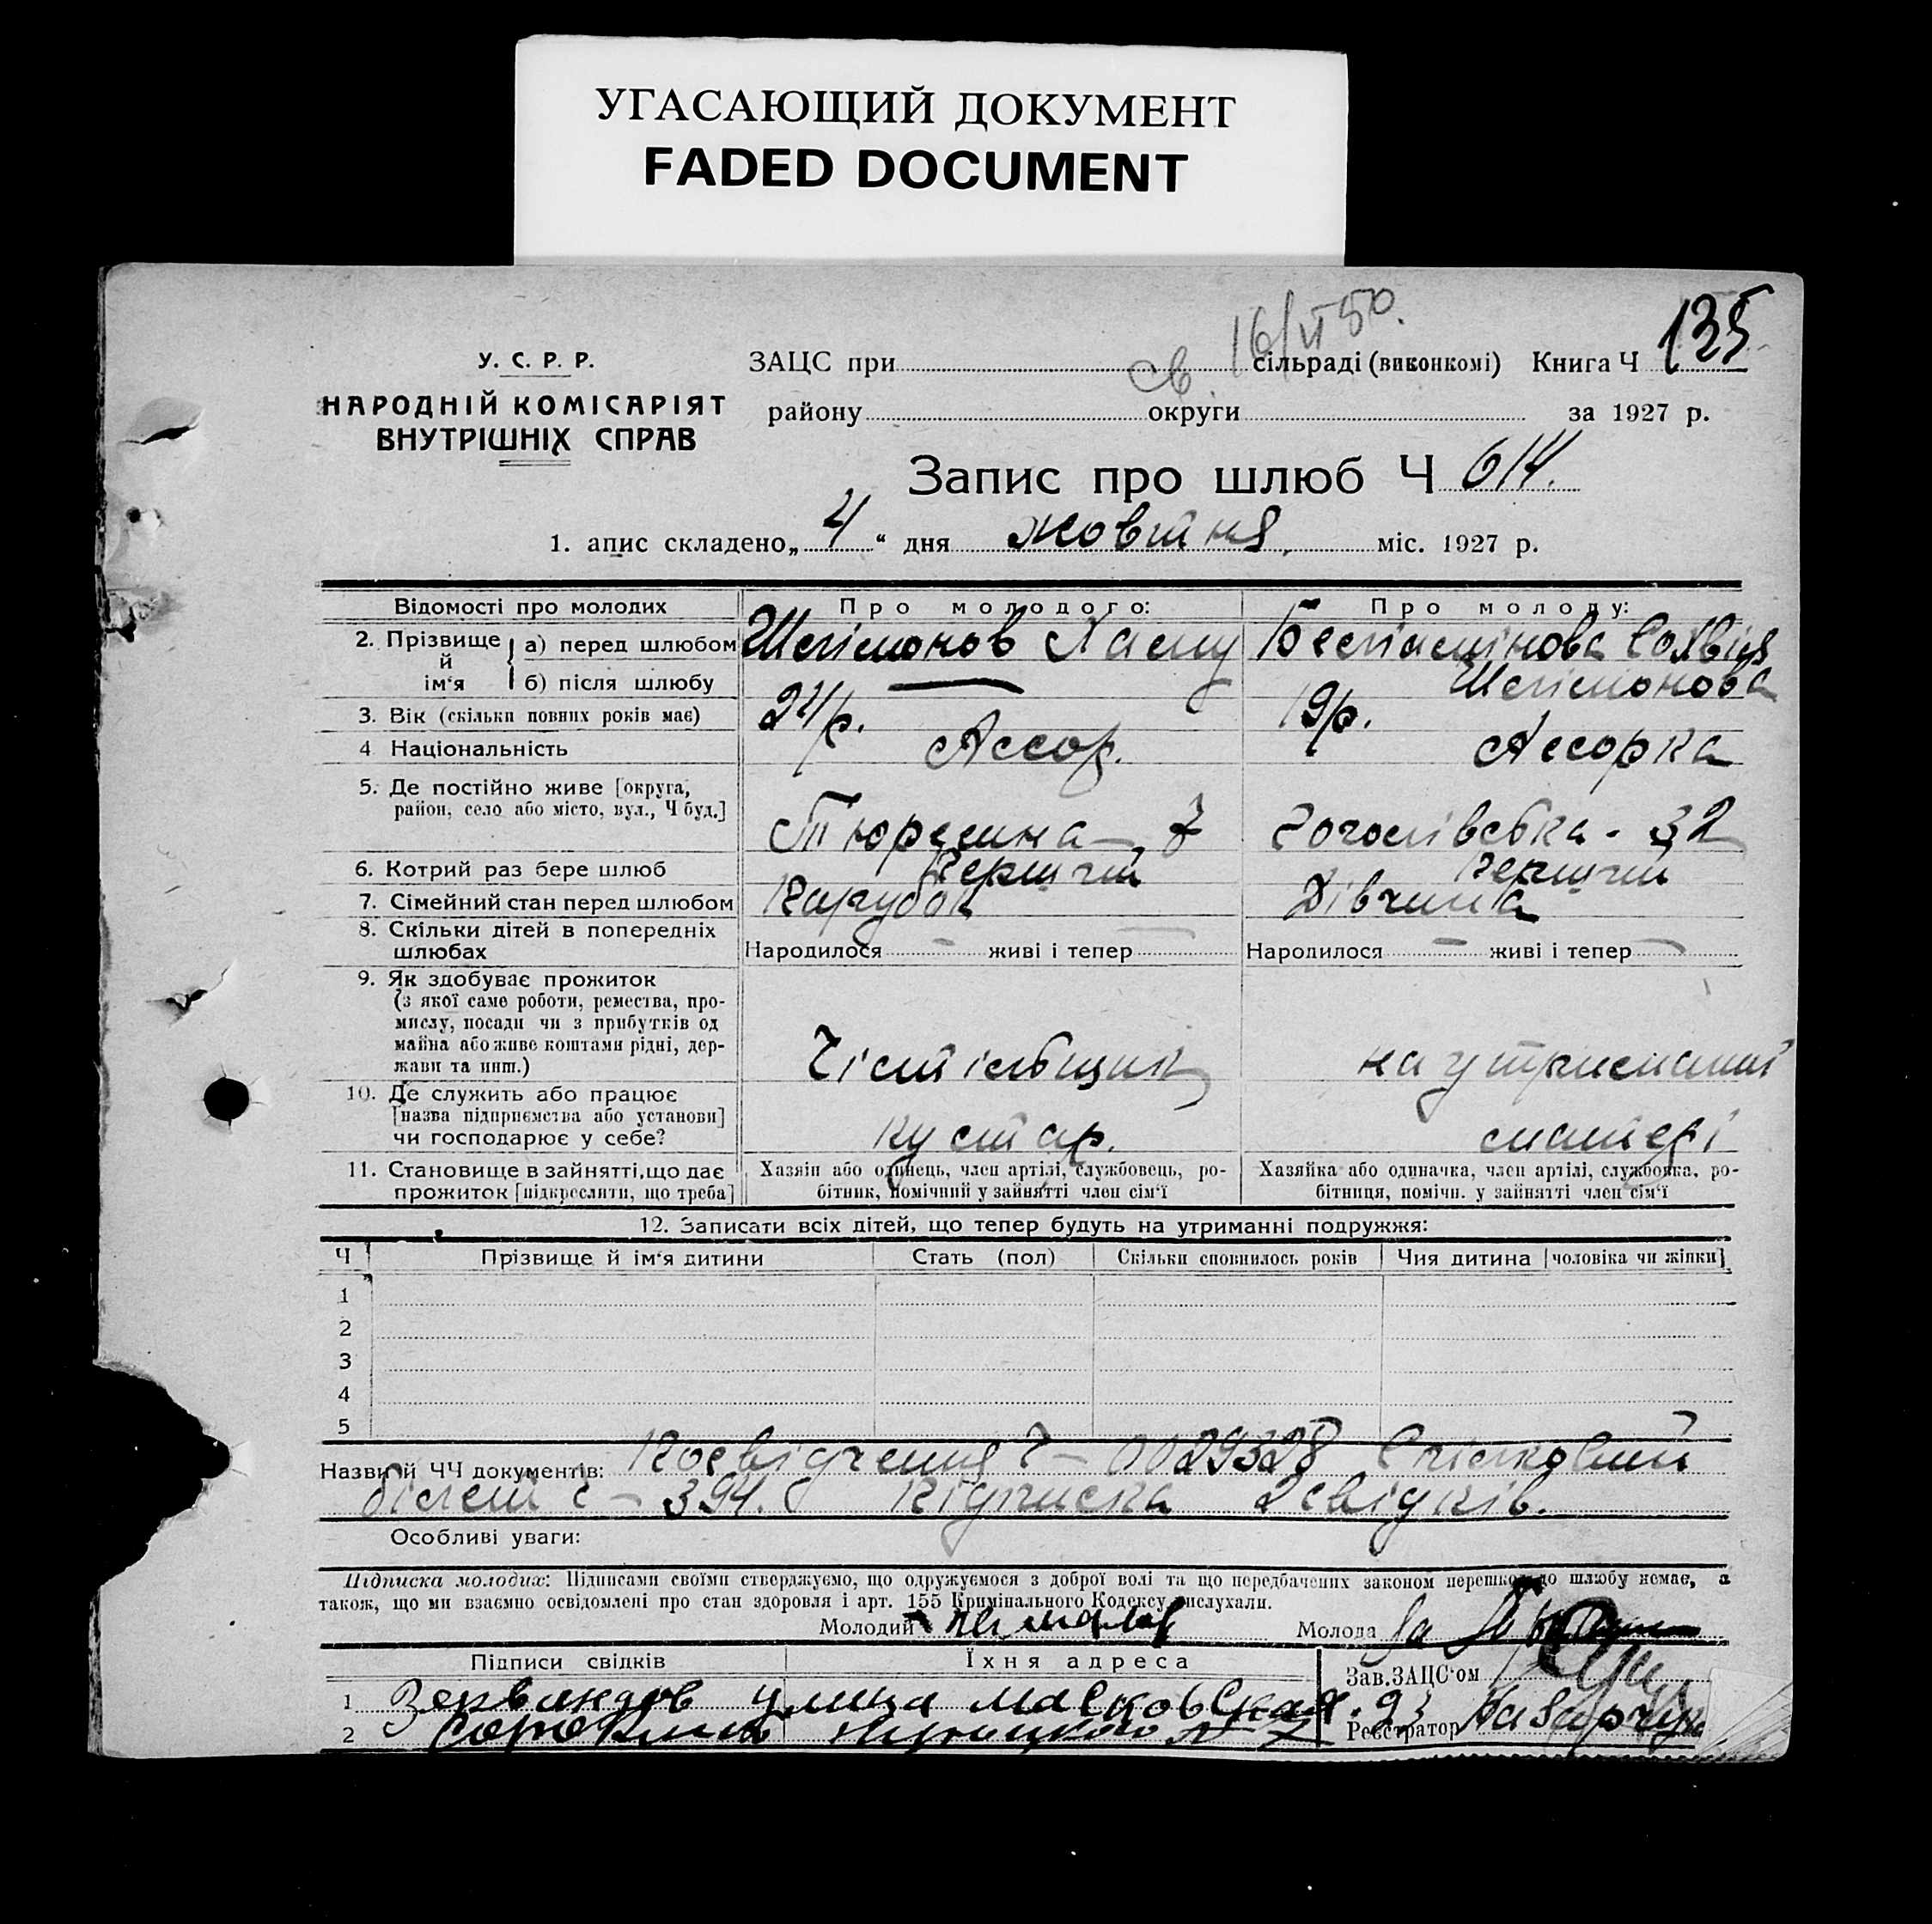 УГАСАЮЩИЙ ДОКУМЕНТ
FADED DOCUMENT
16/VI 50.
св.
135
У. С. Р. Р.
НАРОДНІЙ КОМІСАРІЯТ
ВНУТРІШНІХ СПРАВ
ЗАЦС при сільраді (виконкомі) Книга Ч
району округи за 1927 р.
Запис про шлюб Ч 614.
1. апис складено „4“ дня жовтня міс. 1927 р.
Відомості про молодих Про молодого: Про молоду:
2. Прізвище й ім‘я а) перед шлюбом Шлімонов Бенiамiнова
б) після шлюбу — Шлімонова
3. Вік (скільки повних років має) 24/р. 19/р.
4 Національність Ассор. Ассорка
5. Де постійно живе [округа,
район, село або місто, вул., Ч буд.]
Тюремна – 7 Гоголівська - 32
6. Котрий раз бере шлюб Перший Перший
7. Сімейний стан перед шлюбом Парубок Дівчина
8. Скільки дітей в попередніх
шлюбах Народилося — живі і тепер — Народилося — живі і тепер —
9. Як здобуває прожиток
(з якої саме роботи, ремества, про-
мислу, посади чи з прибутків од
майна або живе коштами рідні, дер-
жави та инш.) Чістільщик на утриманні
10. Де служить або працює
[назва підприємства або установи]
чи господарює у себе? кустар. матері
11. Становище в зайнятті, що дає
прожиток [підкреслити, що треба]
Хазяїн або одинець, член артілі, службовець, ро-
бітник, помічний у зайнятті член сім‘ї
Хазяйка або одиначка, член артілі, службовка, ро-
бітниця, помічн. у зайнятті член сім‘ї
12. Записати всіх дітей, що тепер будуть на утриманні подружжя:
Ч Прізвище й ім‘я дитини Стать (пол) Скільки сповнилось років Чия дитина [чоловіка чи жінки]
1
2
3
4
5
Назви й ЧЧ документів: Посвідчення Ч – 0029328 Спілковий
білет Ч – 394. Підписка 2 свідків.
Особливі уваги:
Підписка молодих: Підписами своїми стверджуємо, що одружуємося з доброї волі та що передбачених законом перешкод до шлюбу немає, а
також, що ми взаємно освідомлені про стан здоровля і арт. 155 Кримінального Кодексу вислухали.
Молодий Молода
Підписи свідків Їхня адреса Зав. ЗАЦС‘ом
1 улица масковская. 93
2 Реєстратор